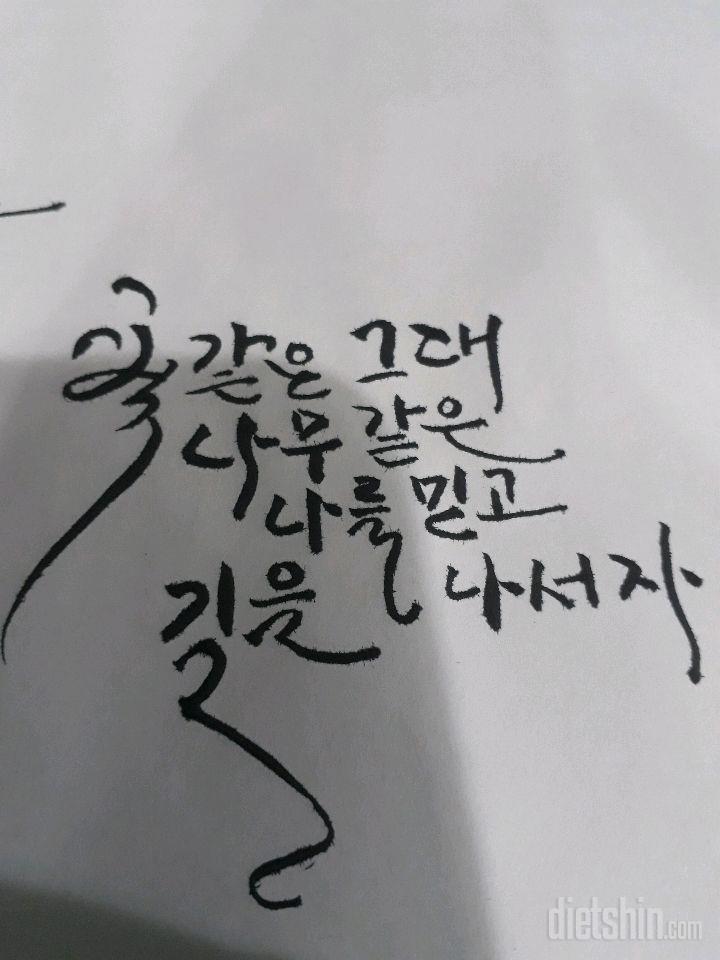 꽃 같은 그대
나무 같은
나를 믿고
길을 나서자
dietshin.com